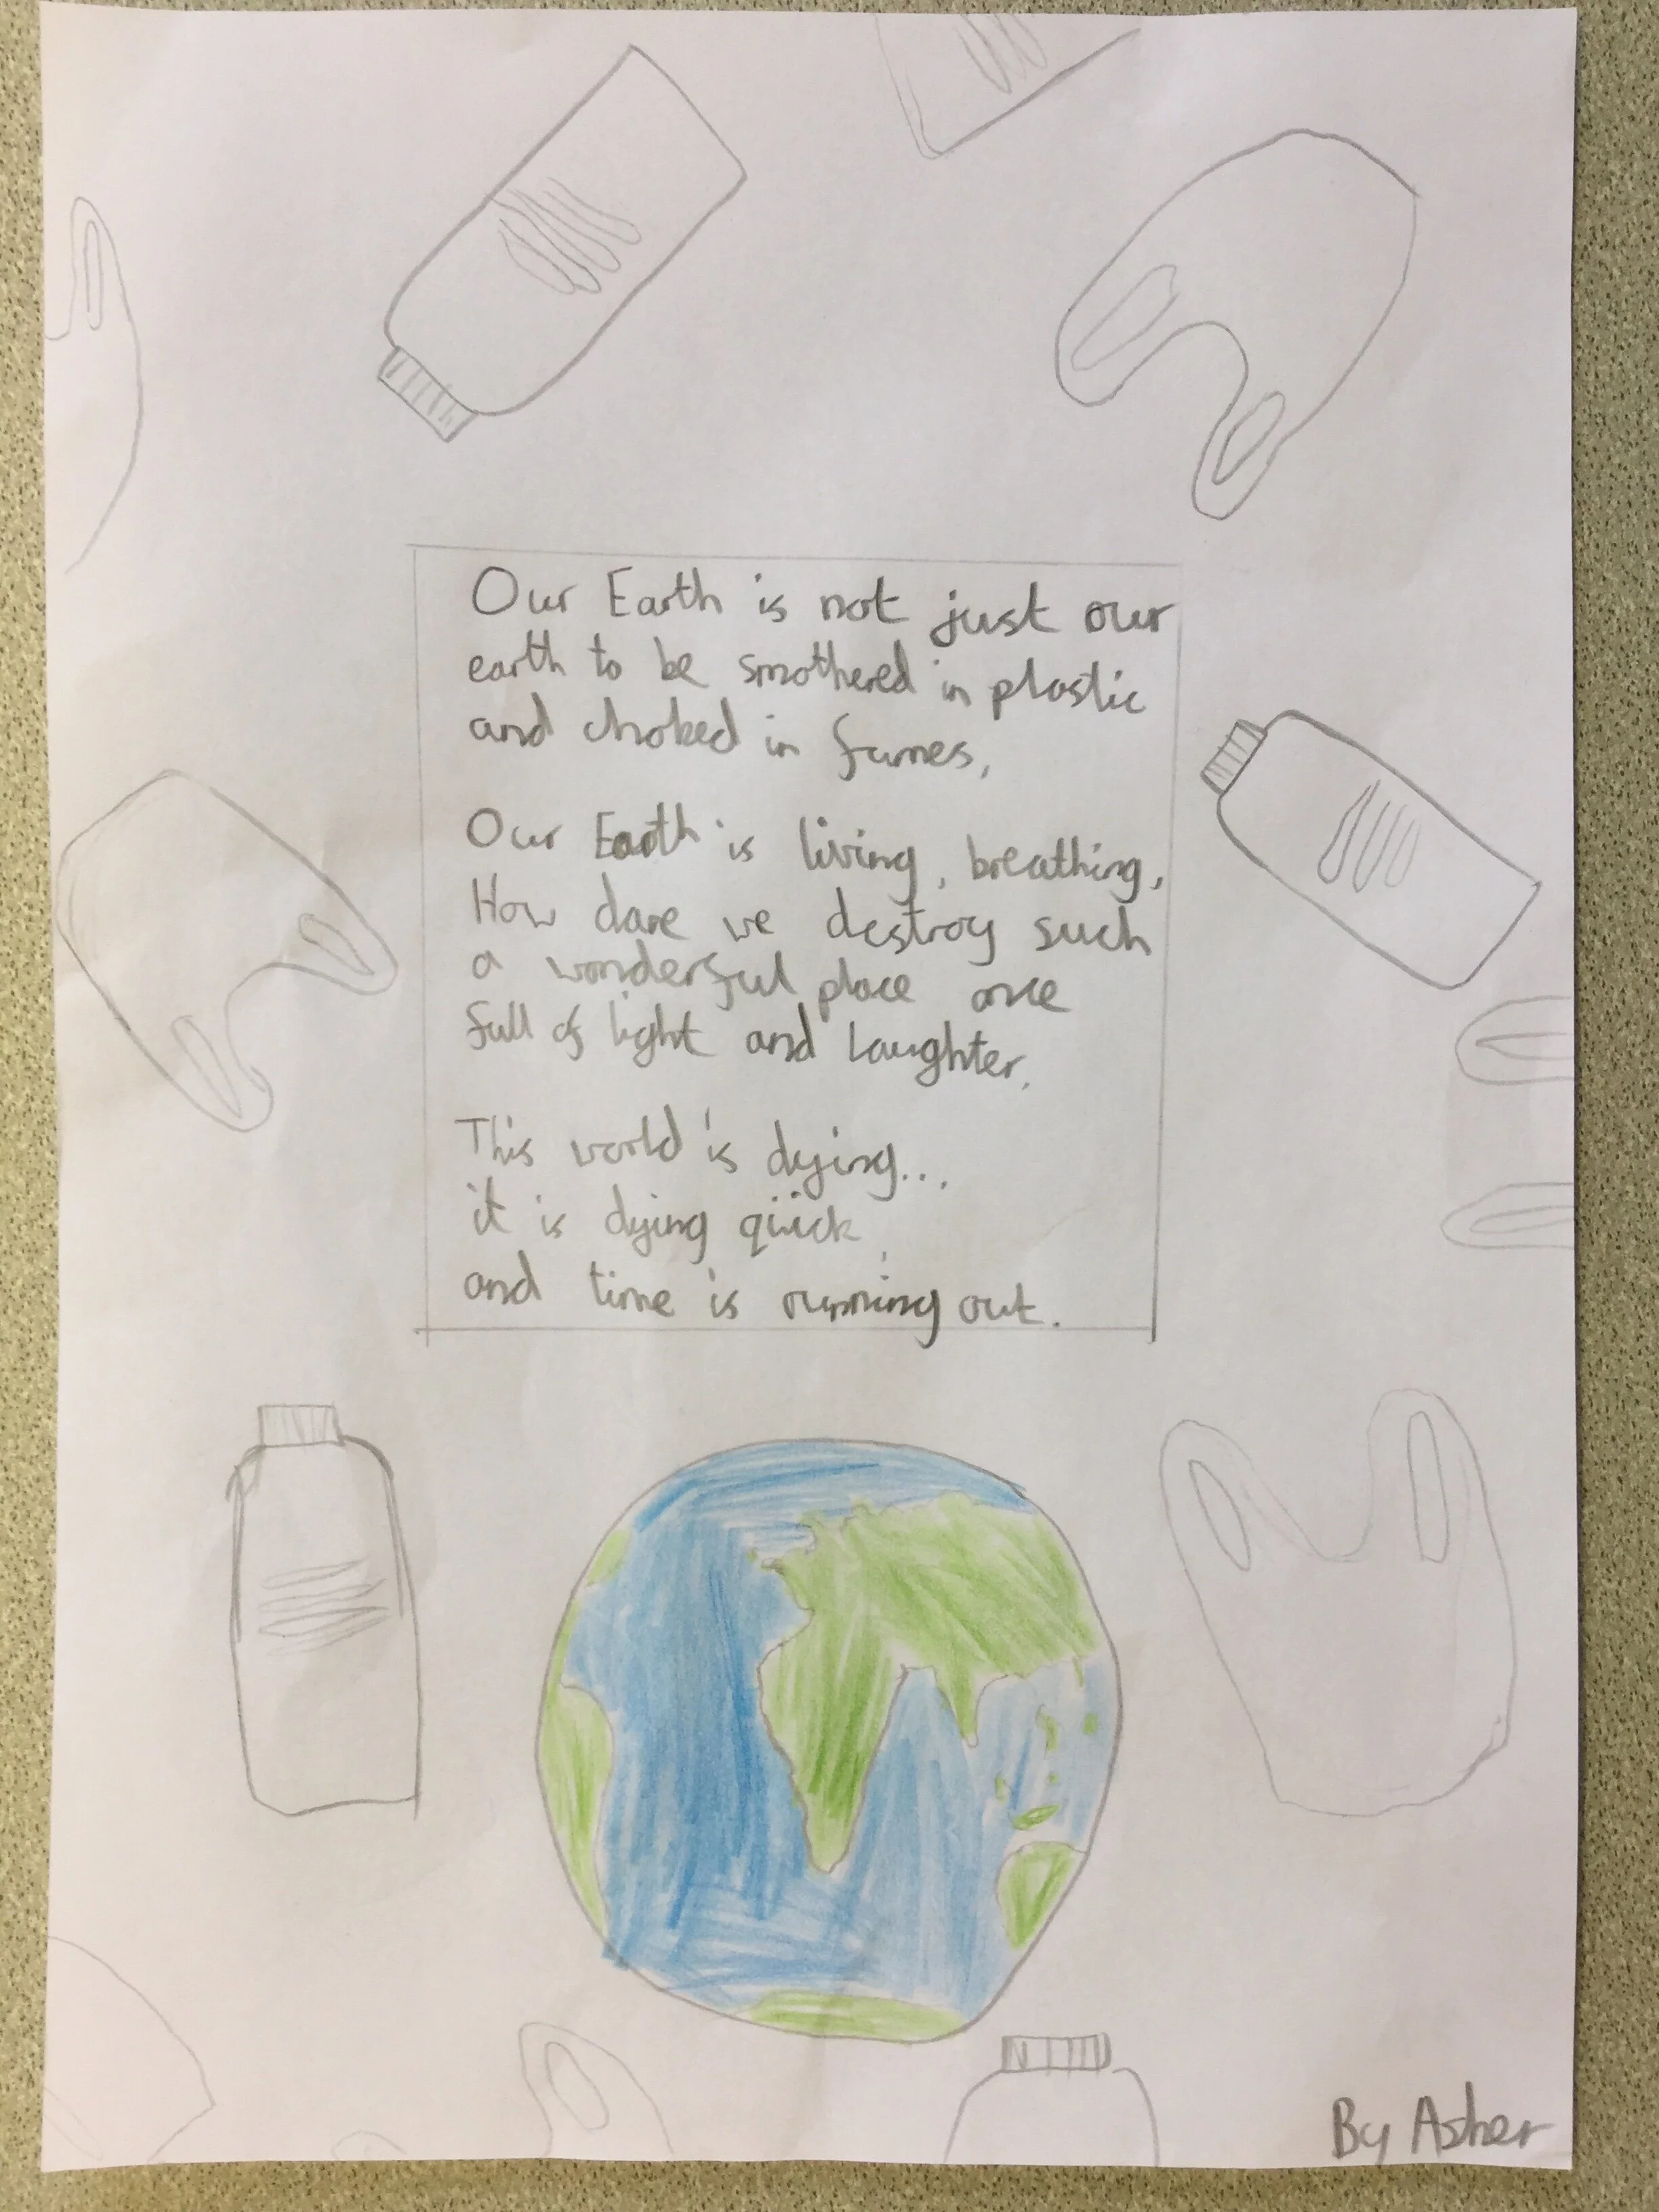 Our Earth is not just our
earth to be smothered in plastic
and choked in fumes,
Our Earth is living, breathing,
How dare we destroy such
a wonderful place once
full of light and laughter.
This world is dying...
it is dying quick,
and time is running out.
By Asher